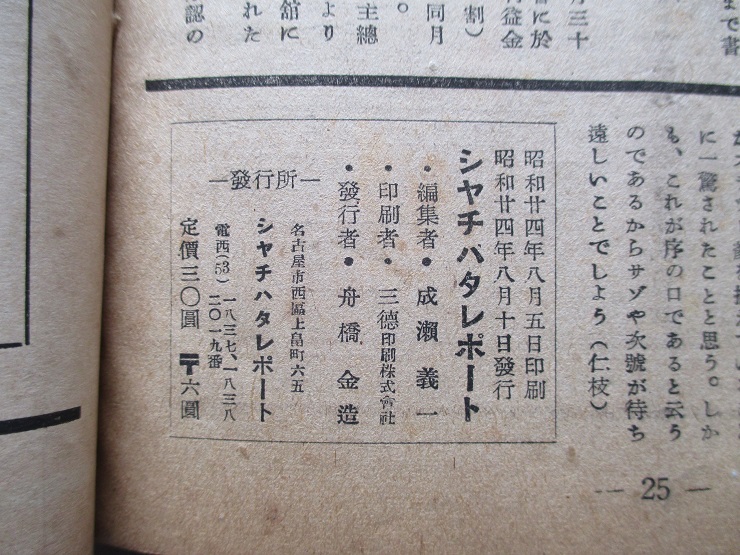 まで書
月三十
書に於
利益金
割）
同月
。
主總
より
舘に
れた
認の
に一驚されたことと思う。しか
も、これが序の口であると云う
のであるからサゾや次號が待ち
遠しいことでしよう（仁枝）
昭和廿四年八月五日印刷
昭和廿四年八月十日發行
シヤチハタレポート
・編集者・成瀨義一
・印刷者・三德印刷株式會社
・發行者・舟橋金造
―發行所―
名古屋市西區上畠町六五
シヤチハタレポート
電西(53)一八三七、一八三八
二〇一九番
定價三〇圓 〒六圓
― 25 ―